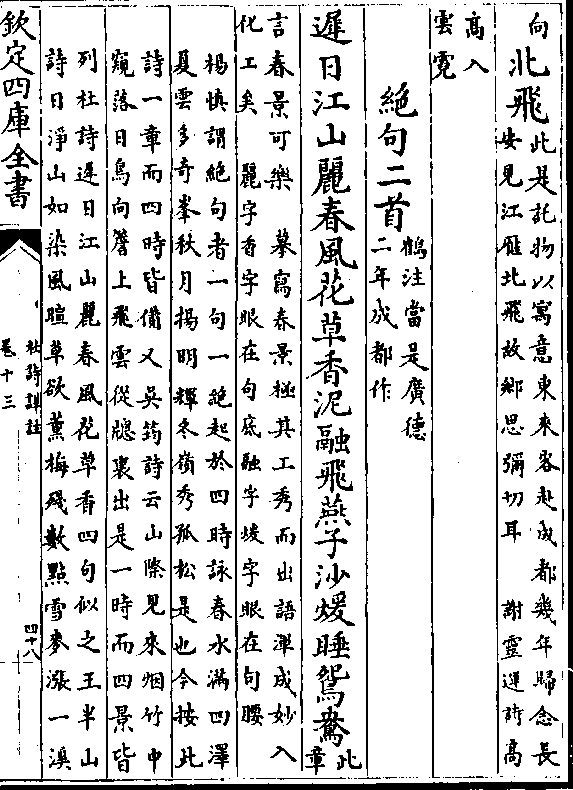 向北飛此是託物以寓意東來客赴成都幾年歸念長
安見江雁北飛故鄉思彌切耳 謝靈運詩高
高入
雲霓
絶句二首鶴注當是廣德
二年成都作
遲日江山麗春風花草香泥融飛燕子沙煖睡鴛鴦此
章
言春景可樂 摹寫春景極其工秀而出語渾成妙入
化工矣 麗字香字眼在句底融字煖字眼在句腰
楊慎謂絶句者一句一絶起於四時詠春水滿四澤
夏雲多奇峯秋月揚明輝冬嶺秀孤松是也今按此
詩一章而四時皆備又吳筠詩云山際見來烟竹中
窺落日鳥向簷上飛雲從牕裏出是一時而四景皆
列杜詩遲日江山麗春風花草香四句似之王半山
詩日淨山如染風暄草欲薰梅殘數點雪麥漲一溪
欽定四庫全書
杜詩詳註
卷十三
四十八